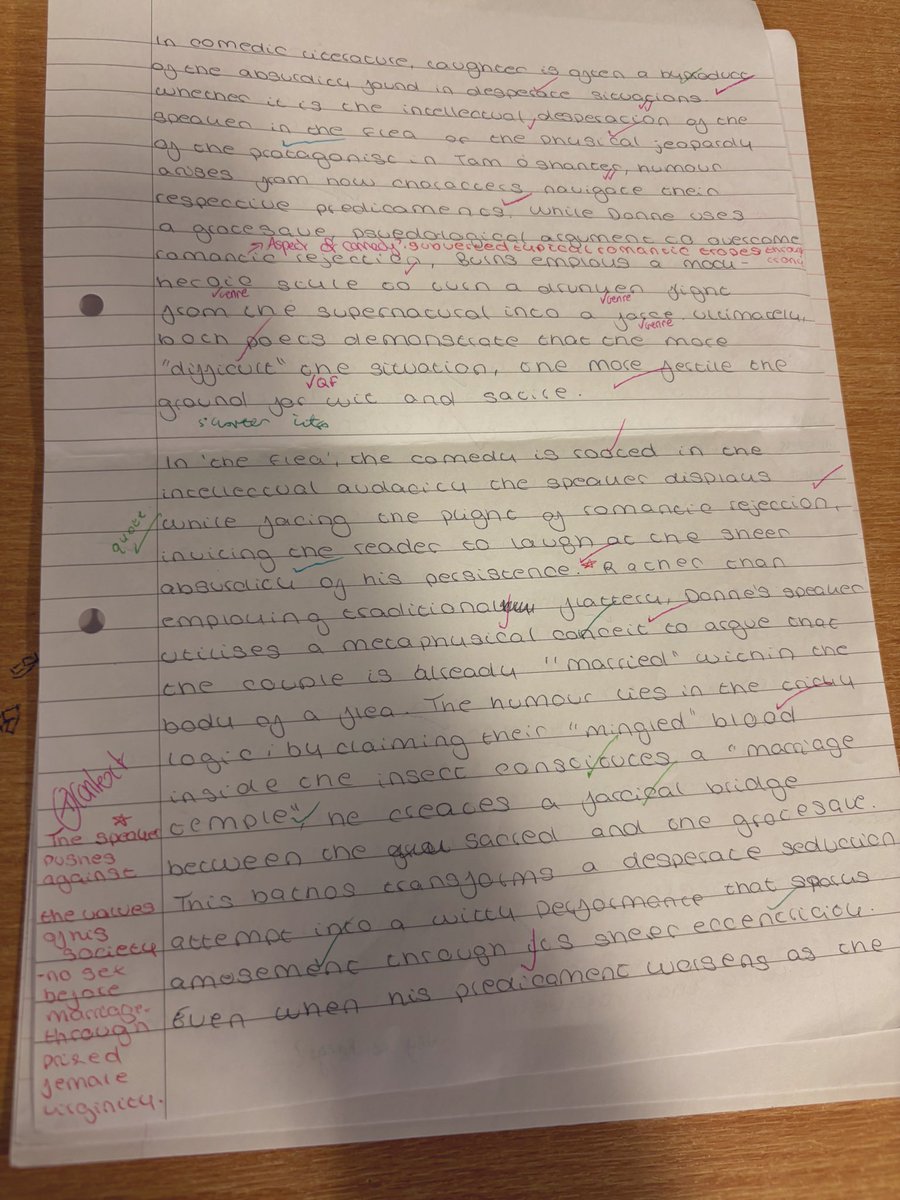 In comedic literature, laughter is often a byproduct
of the absurdity found in desperate situations.
Whether it is the intellectual desperation of the
speaker in the Flea or the physical jeopardy
of the protaganist in Tam o'shanter, humour
arises from how characters navigate their
respective predicaments. While Donne uses
a grotesque, psuedological argument to overcome
→ Aspect of comedy: subverted typical romantic tropes through
romantic rejection, Burns employs a mock- irony
heroic style to turn a drunken fight
genre genre
from the supernatural into a farce. Ultimately,
genre
both poets demonstrate that the more
"difficult" the situation, the more fertile the
QF
ground for wit and satire.
shorter intro
In 'the Flea', the comedy is rooted in the
intellectual audacity the speaker displays
while facing the plight of romantic rejection,
quote
inviting the reader to laugh at the sheer
absurdity of his persistence. * Rather than
employing traditional flattery, Donne's speaker
utilises a metaphysical conceit to argue that
the couple is already "married" within the
body of a flea. The humour lies in the
logic; by claiming their "mingled" blood
inside the insect constitutes a "marriage
temple", he creates a farcical bridge
between the sacred and the grotesque.
This bathos transforms a desperate seduction
attempt into a witty performance that sparks
amusement through its sheer eccentricity.
Even when his predicament worsens as the
context
*
The speaker
pushes
against
the values
of his
society
-no sex
before
marriage-
through
prized
female
virginity.